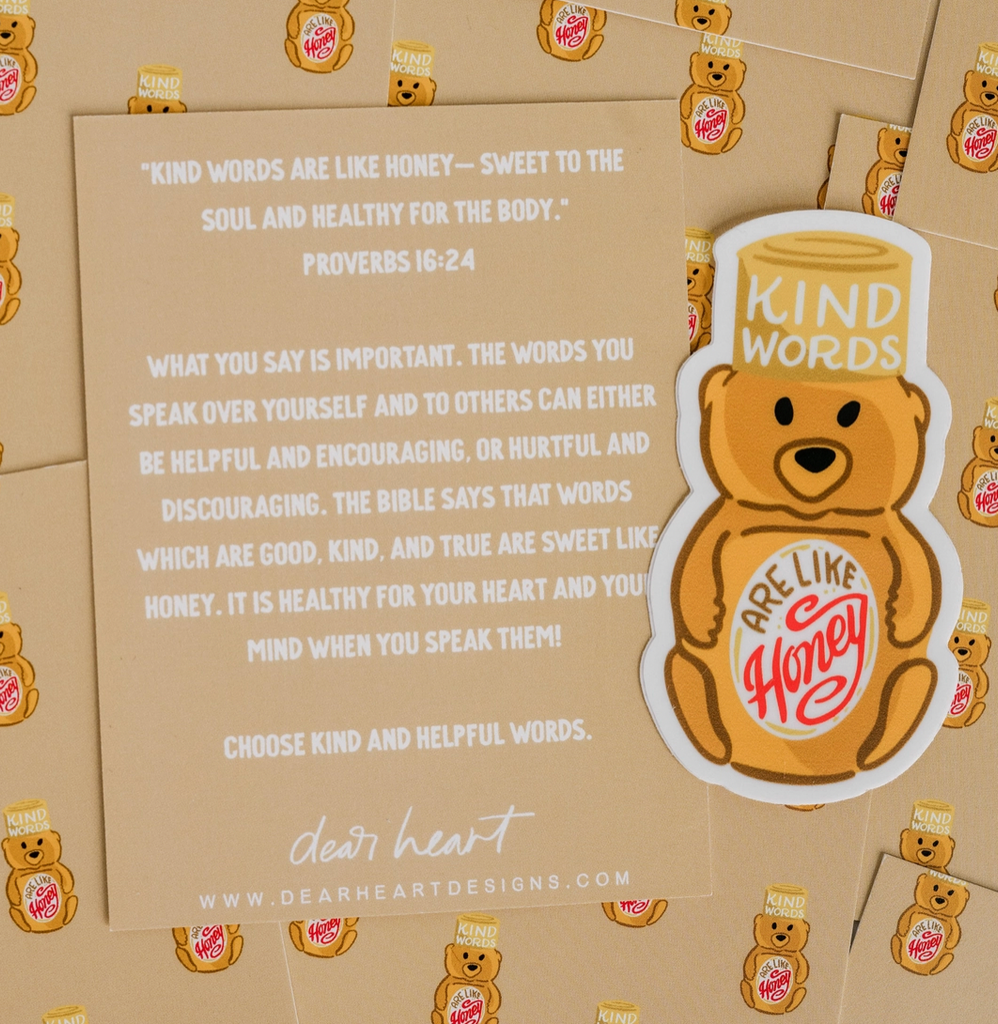 "KIND WORDS ARE LIKE HONEY— SWEET TO THE
SOUL AND HEALTHY FOR THE BODY."
PROVERBS 16:24
WHAT YOU SAY IS IMPORTANT. THE WORDS YOU
SPEAK OVER YOURSELF AND TO OTHERS CAN EITHER
BE HELPFUL AND ENCOURAGING, OR HURTFUL AND
DISCOURAGING. THE BIBLE SAYS THAT WORDS
WHICH ARE GOOD, KIND, AND TRUE ARE SWEET LIKE
HONEY. IT IS HEALTHY FOR YOUR HEART AND YOU
MIND WHEN YOU SPEAK THEM!
CHOOSE KIND AND HELPFUL WORDS.
dear heart
WWW.DEARHEARTDESIGNS.COM
KIND
WORDS
ARE LIKE
Honey